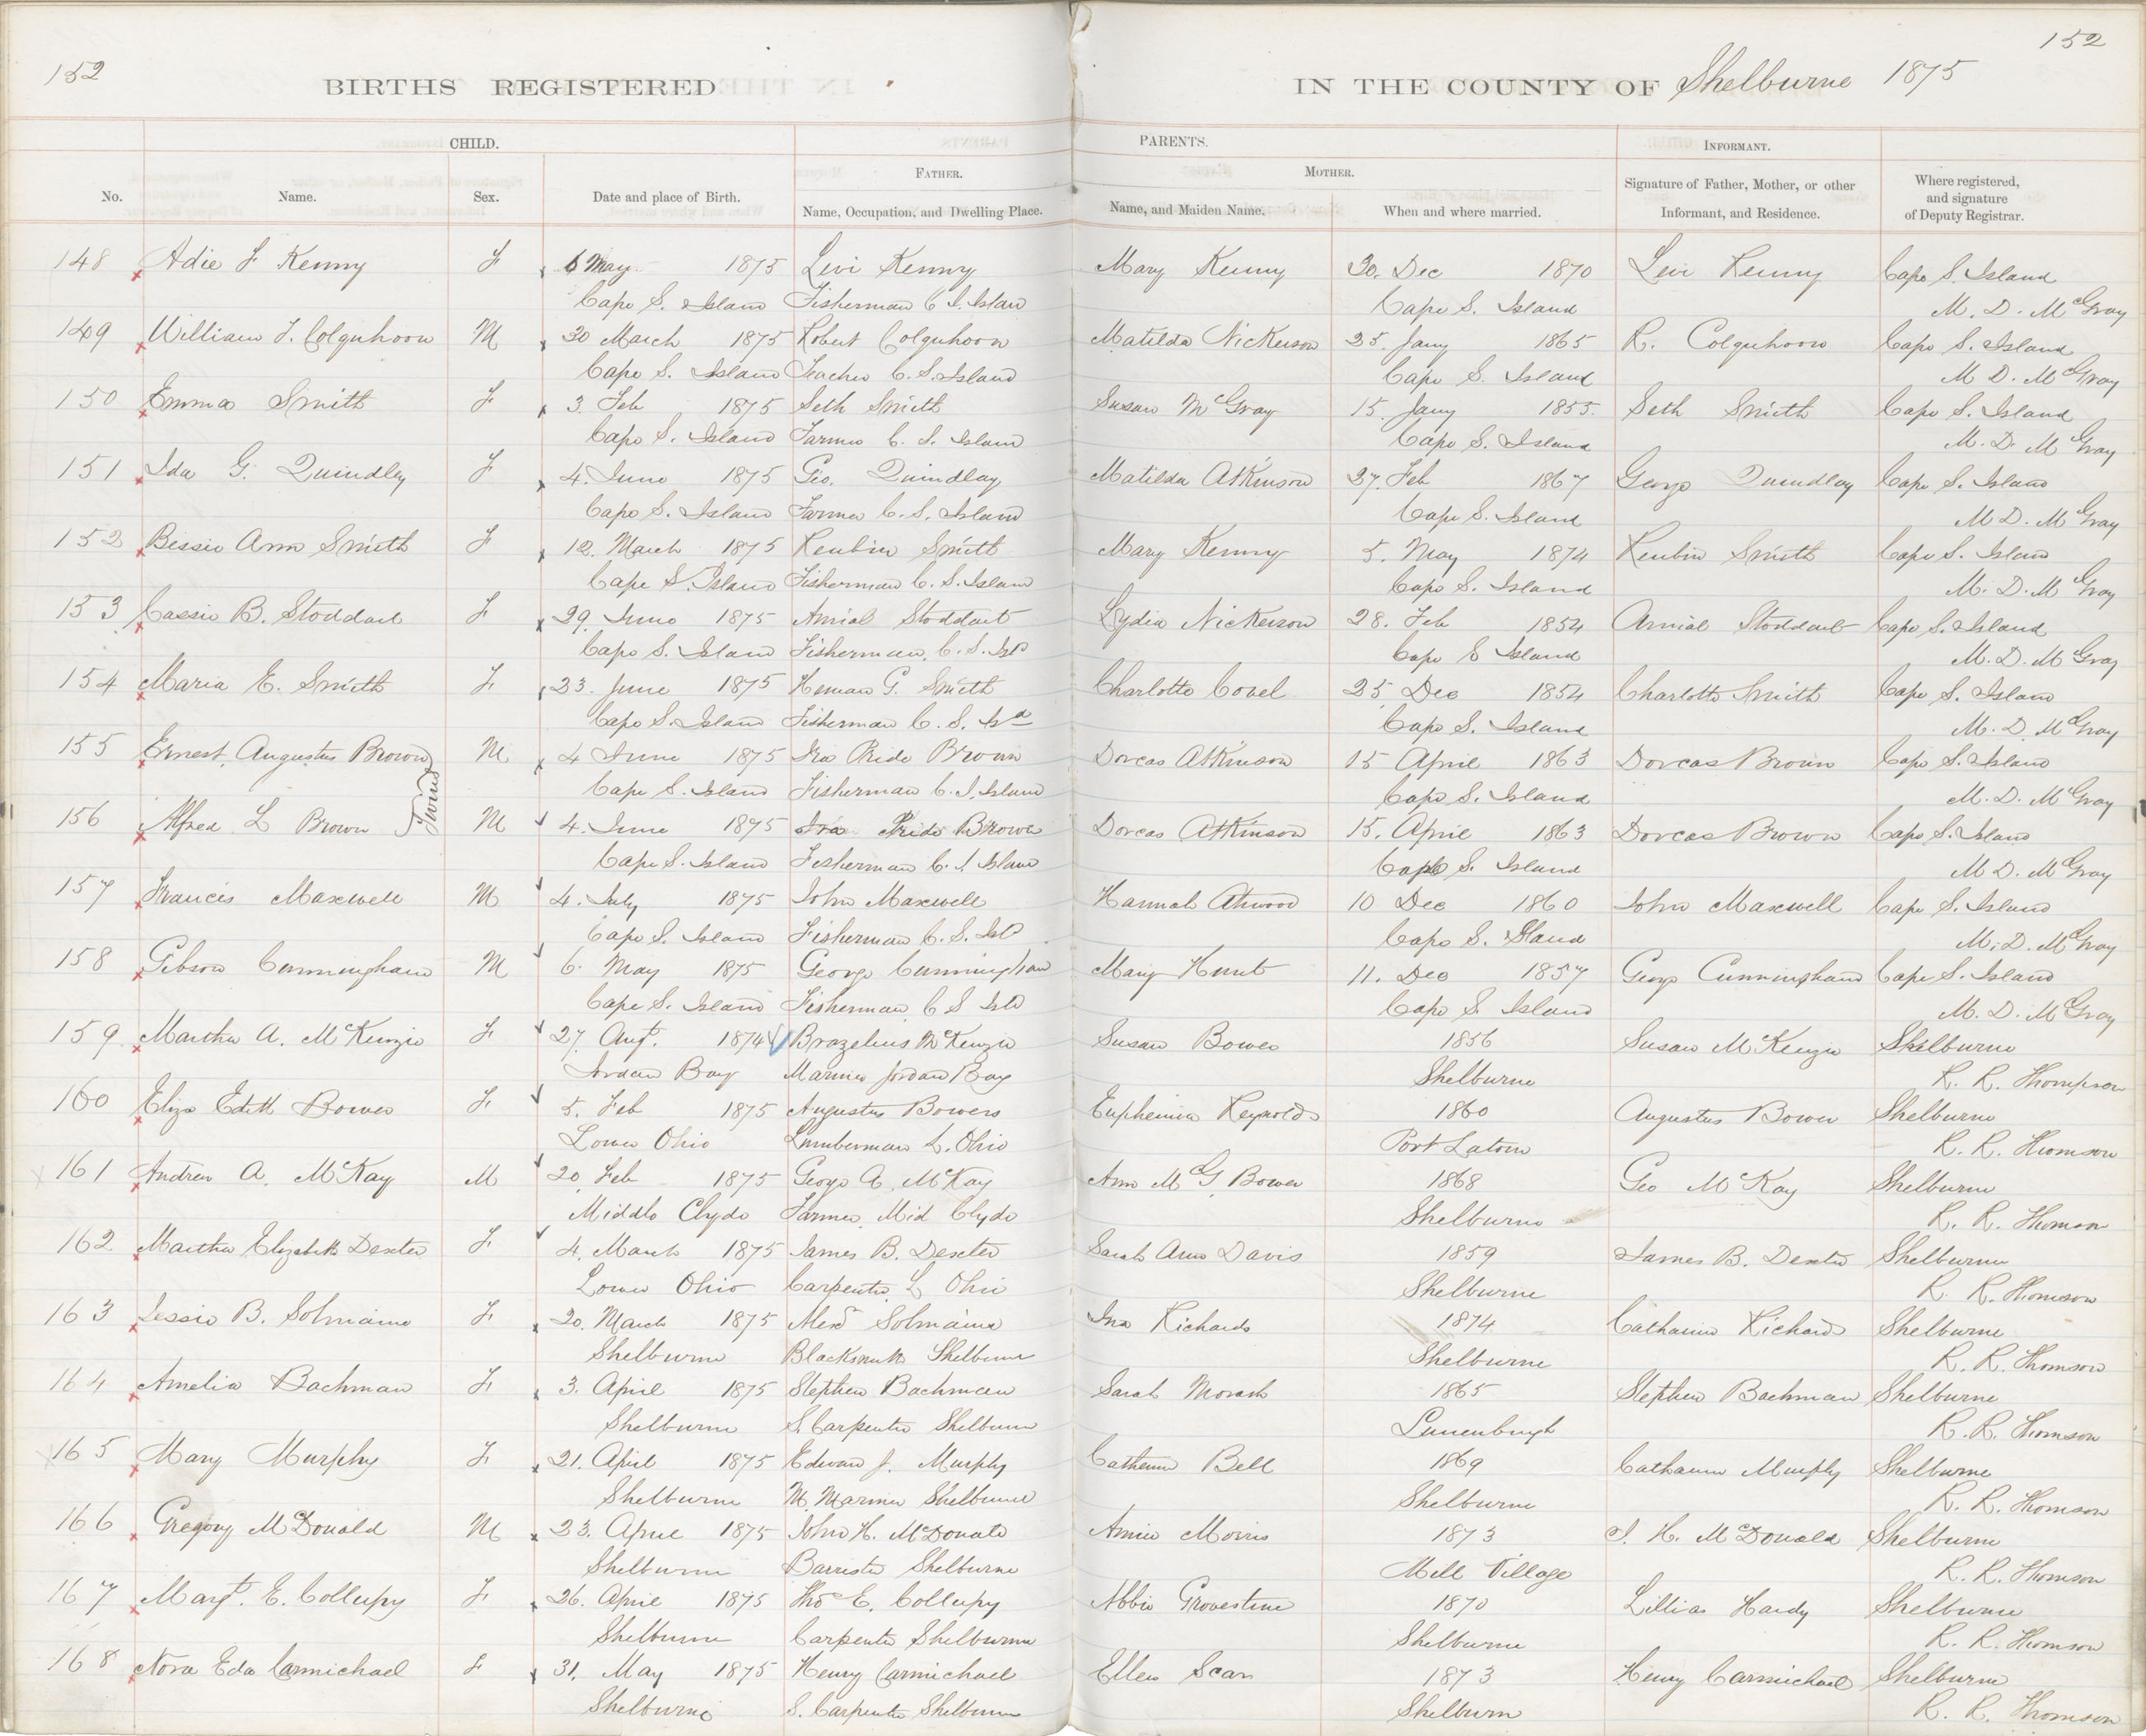 152
152
BIRTHS REGISTERED IN THE COUNTY OF Shelburne 1875
CHILD. PARENTS. INFORMANT.
FATHER. MOTHER.
No. Name. Sex. Date and place of Birth. Name, Occupation, and Dwelling Place. Name, and Maiden Name. When and where married. Signature of Father, Mother, or other Informant, and Residence. Where registered, and signature of Deputy Registrar.
148 Adie F Kenny F 6 May 1875 Levi Kenny Mary Kenny 30. Dec 1870 Levi Kenny Cape S. Island
Cape S. Island Fisherman C S. Islan Cape S. Island M. D. McGray
149 William J. Colquhoon M 30 March 1875 Robert Colquhoon Matilda Nickerson 25. Jany 1865 R. Colquhoon Cape S. Island
Cape S. Island Teacher C. S. Island Cape S. Island M D. McGray
150 Emma Smith F 3. Feb 1875 Seth Smith Susan McGray 15. Jany 1855. Seth Smith Cape S. Island
Cape S. Island Farmer C. S. Island Cape S. Island M. D. McGray
151 Ida G. Quindley F 4. June 1875 Geo. Quindlay Matilda Atkinson 27. Feb 1867 George Quindlay Cape S. Island
Cape S. Island Farmer C. S. Island Cape S. Island M D. McGray
152 Bessie Ann Smith F 12. March 1875 Reubin Smith Mary Kenny 5. May 1874 Reubin Smith Cape S. Islan
Cape S. Island Fisherman C. S. Islan Cape S. Island M. D. McGray
153 Cassie B. Stoddart F 29. June 1875 Amial Stoddart Lydia Nickerson 28. Feb 1854 Amial Stoddart Cape S. Island
Cape S. Island Fisherman. C. S. Isd Cape S Island M. D. McGray
154 Maria E. Smith F 23. June 1875 Heman G. Smith Charlotte Covel 25 Dec 1854 Charlotte Smith Cape S. Island
Cape S. Island Fisherman C. S. Isd Cape S. Island M. D. McGray
155 Ernest Augustus Brown M 4 June 1875 Ira Pride Brown Dorcas Atkinson 15 April 1863 Dorcas Brown Cape S. Island
Twins
Cape S. Island Fisherman C. S. Island Cape S. Island M. D. McGray
156 Alfred L Brown M 4. June 1875 Ira Pride Brown Dorcas Atkinson 15. April 1863 Dorcas Brown Cape S. Island
Cape S. Island Fisherman C. S Island Cape S. Island M D. McGray
157 Francis Maxwell M 4. July 1875 John Maxwell Hannah Atwood 10 Dec 1860 John Maxwell Cape S. Island
Cape S. Island Fisherman C. S. Isd Cape S. Island M. D. McGray
158 Gibson Cunningham M 6. May 1875 George Cunningham Mary Hunt 11. Dec 1857 George Cunningham Cape S. Island
Cape S. Island Fisherman C S Isd Cape S. Island M. D. McGray
159 Martha A. McKenzie F 27. Augt. 1874 Brazelius McKenzie Susan Bower 1856 Susan McKenzie Shelburne
Jordan Bay Mariner Jordan Bay Shelburne R. R. Thompson
160 Eliza Edith Bower F 5. Feb 1875 Augustus Bowers Euphemia Reynolds 1860 Augustus Bower Shelburne
Lower Ohio Lumberman L. Ohio Port Latour R. R. Thomson
161 Andrew A. McKay M 20 Feb 1875 George A. McKay Ann McG Bower 1868 Geo McKay Shelburne
Middle Clyde Farmer Mid Clyde Shelburne R. R. Thomson
162 Martha Elizabeth Dexter F 4. March 1875 James B. Dexter Sarah Ann Davis 1859 James B. Dexter Shelburne
Lower Ohio Carpenter L Ohio Shelburne R. R. Thomson
163 Jessie B. F 20. March 1875 Alexr Ina Richards 1874 Catharine Richards Shelburne
Shelburne Blacksmith Shelburne Shelburne R. R. Thomson
164 Amelia Bachman F 3. April 1875 Stephen Bachman Sarah Morash 1865 Stephen Bachman Shelburne
Shelburne S. Carpenter Shelburne Lunenburgh R. R. Thomson
165 Mary Murphy F 21. April 1875 Edward J. Murphy Catherine Bell 1869 Catharine Murphy Shelburne
Shelburne M. Mariner Shelburne Shelburne R. R. Thomson
166 Gregory McDonald M 23. April 1875 John H. McDonald Annie Morris 1873 J. H. McDonald Shelburne
Shelburne Barrister Shelburne Mill Village R. R. Thomson
167 Margt. E. Collupy F 26. April 1875 Thos E. Collupy Abbie Grovestine 1870 Lillias Hardy Shelburne
Shelburne Carpenter Shelburne Shelburne R. R. Thomson
168 Nora Eda Carmichael F 31. May 1875 Henry Carmichael Ellen 1873 Henry Carmichael Shelburne
Shelburne S. Carpenter Shelburne Shelburn R. R. Thomson